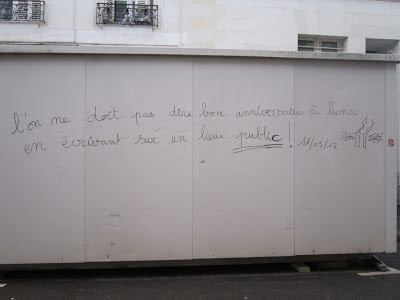 l'on ne doit pas dire bon anniversaire à luna
en écrivant sur un lieu public ! 11/03/12